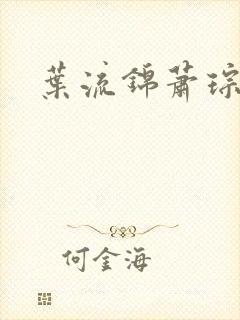 葉流錦蕭琮
何金海